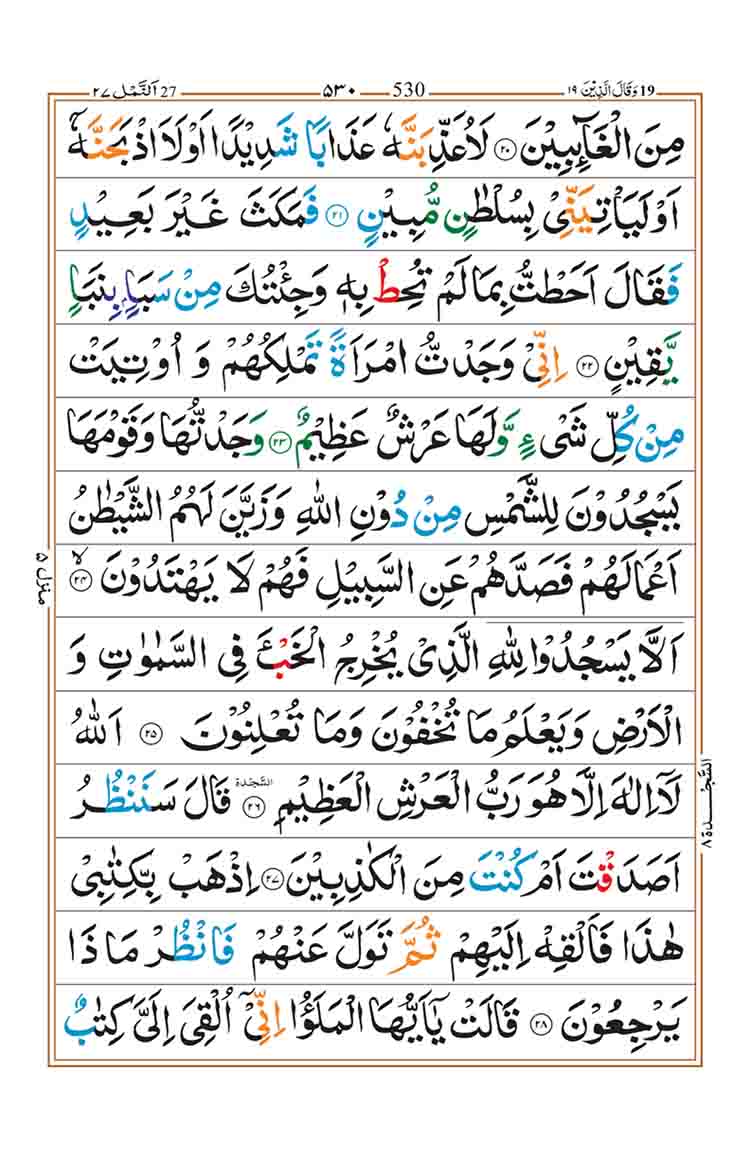 19 وَقَالَ الَّذِیْنَ ١٩ 530 ٥٣٠ 27 اَلنَّمْل ٢٧
مِنَ الْغَآىِٕبِیْنَ ٢٠ لَاُعَذِّبَنَّهٗ عَذَابًا شَدِیْدًا اَوْ لَاَاذْبَحَنَّهٗۤ
اَوْ لَیَاْتِیَنِّیْ بِسُلْطٰنٍ مُّبِیْنٍ ٢١ فَمَكَثَ غَیْرَ بَعِیْدٍ
فَقَالَ اَحَطْتُّ بِمَا لَمْ تُحِطْ بِهٖ وَ جِئْتُكَ مِنْ سَبَاٍۭ بِنَبَاٍ
یَّقِیْنٍ ٢٢ اِنِّیْ وَجَدْتُّ امْرَاَةً تَمْلِكُهُمْ وَ اُوْتِیَتْ
مِنْ كُلِّ شَیْءٍ وَّ لَهَا عَرْشٌ عَظِیْمٌ ٢٣ وَجَدْتُّهَا وَ قَوْمَهَا
یَسْجُدُوْنَ لِلشَّمْسِ مِنْ دُوْنِ اللّٰهِ وَ زَیَّنَ لَهُمُ الشَّیْطٰنُ
اَعْمَالَهُمْ فَصَدَّهُمْ عَنِ السَّبِیْلِ فَهُمْ لَا یَهْتَدُوْنَ ٢٤ ۙ
اَلَّا یَسْجُدُوْا لِلّٰهِ الَّذِیْ یُخْرِجُ الْخَبْءَ فِی السَّمٰوٰتِ وَ
الْاَرْضِ وَ یَعْلَمُ مَا تُخْفُوْنَ وَ مَا تُعْلِنُوْنَ ٢٥ اَللّٰهُ
لَاۤ اِلٰهَ اِلَّا هُوَ رَبُّ الْعَرْشِ الْعَظِیْمِ ٢٦ السَّجْدَة قَالَ سَنَنْظُرُ
اَصَدَقْتَ اَمْ كُنْتَ مِنَ الْكٰذِبِیْنَ ٢٧ اِذْهَبْ بِّكِتٰبِیْ
هٰذَا فَاَلْقِهْ اِلَیْهِمْ ثُمَّ تَوَلَّ عَنْهُمْ فَانْظُرْ مَا ذَا
یَرْجِعُوْنَ ٢٨ قَالَتْ یٰۤاَیُّهَا الْمَلَؤُا اِنِّیْۤ اُلْقِیَ اِلَیَّ كِتٰبٌ
منزل ٥
السَّجْدة ٨